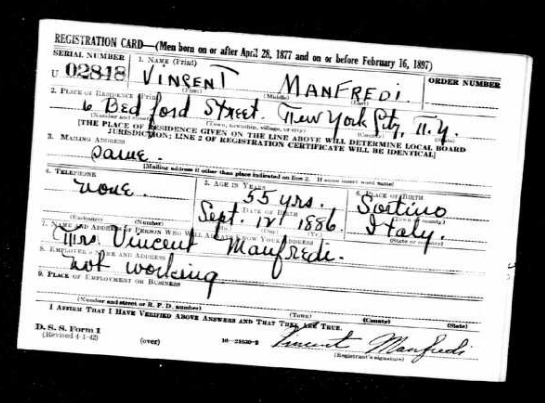 REGISTRATION CARD—(Men born on or after April 28, 1877 and on or before February 16, 1897)
SERIAL NUMBER 1. NAME (Print) ORDER NUMBER
U 02848 VINSENT MANFREDI
(First) (Middle) (Last)
2. PLACE OF RESIDENCE (Print)
6 Bedford Street. New York City, N.Y.
(Number and street) (Town, township, village, or city) (County) (State)
[THE PLACE OF RESIDENCE GIVEN ON THE LINE ABOVE WILL DETERMINE LOCAL BOARD
JURISDICTION; LINE 2 OF REGISTRATION CERTIFICATE WILL BE IDENTICAL]
3. MAILING ADDRESS
same.
[Mailing address if other than place indicated on line 2. If same insert word same]
4. TELEPHONE 5. AGE IN YEARS 6. PLACE OF BIRTH
none. 55 yrs. Sortino
DATE OF BIRTH
Sept. 12 1886. Italy.
(Exchange) (Number) (Mo.) (Day) (Yr.) (State or country)
7. NAME AND ADDRESS OF PERSON WHO WILL ALWAYS KNOW YOUR ADDRESS
Mrs. Vincent Manfredi.
8. EMPLOYER'S NAME AND ADDRESS
not working
9. PLACE OF EMPLOYMENT OR BUSINESS
(Number and street or R. F. D. number) (Town) (County) (State)
I AFFIRM THAT I HAVE VERIFIED ABOVE ANSWERS AND THAT THEY ARE TRUE.
D. S. S. Form 1
(Revised 4-1-42) (over) 16—21630-2 Vincent Manfredi
(Registrant's signature)